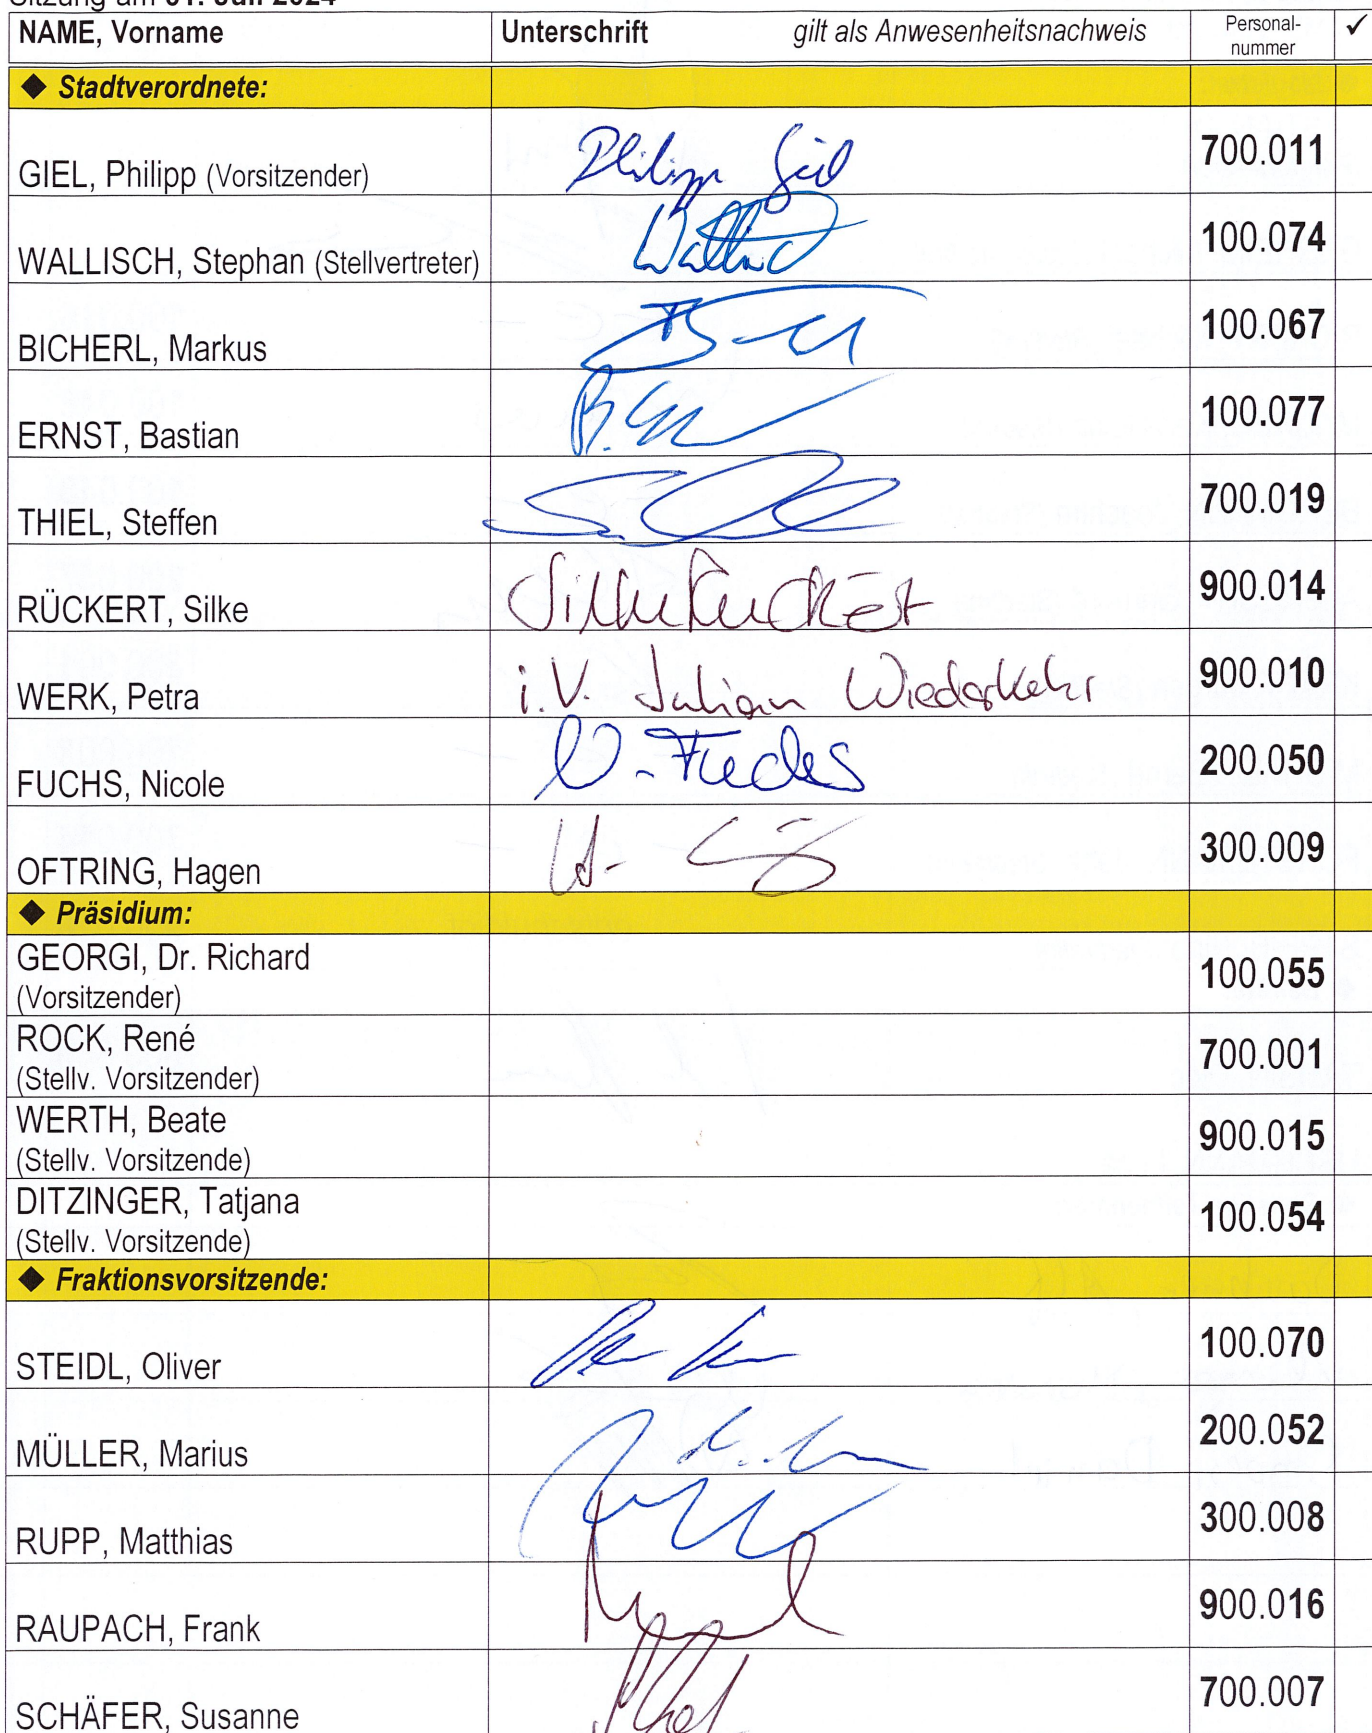 Sitzung am 01. Juli 2024
NAME, Vorname Unterschrift gilt als Anwesenheitsnachweis Personal-nummer ✓
◆ Stadtverordnete:
GIEL, Philipp (Vorsitzender) Philipp Giel 700.011
WALLISCH, Stephan (Stellvertreter) 100.074
BICHERL, Markus 100.067
ERNST, Bastian 100.077
THIEL, Steffen 700.019
RÜCKERT, Silke Silke Rückert 900.014
WERK, Petra i.V. Julian Wiederkehr 900.010
FUCHS, Nicole N. Fuchs 200.050
OFTRING, Hagen 300.009
◆ Präsidium:
GEORGI, Dr. Richard
(Vorsitzender) 100.055
ROCK, René
(Stellv. Vorsitzender) 700.001
WERTH, Beate
(Stellv. Vorsitzende) 900.015
DITZINGER, Tatjana
(Stellv. Vorsitzende) 100.054
◆ Fraktionsvorsitzende:
STEIDL, Oliver 100.070
MÜLLER, Marius 200.052
RUPP, Matthias 300.008
RAUPACH, Frank 900.016
SCHÄFER, Susanne 700.007